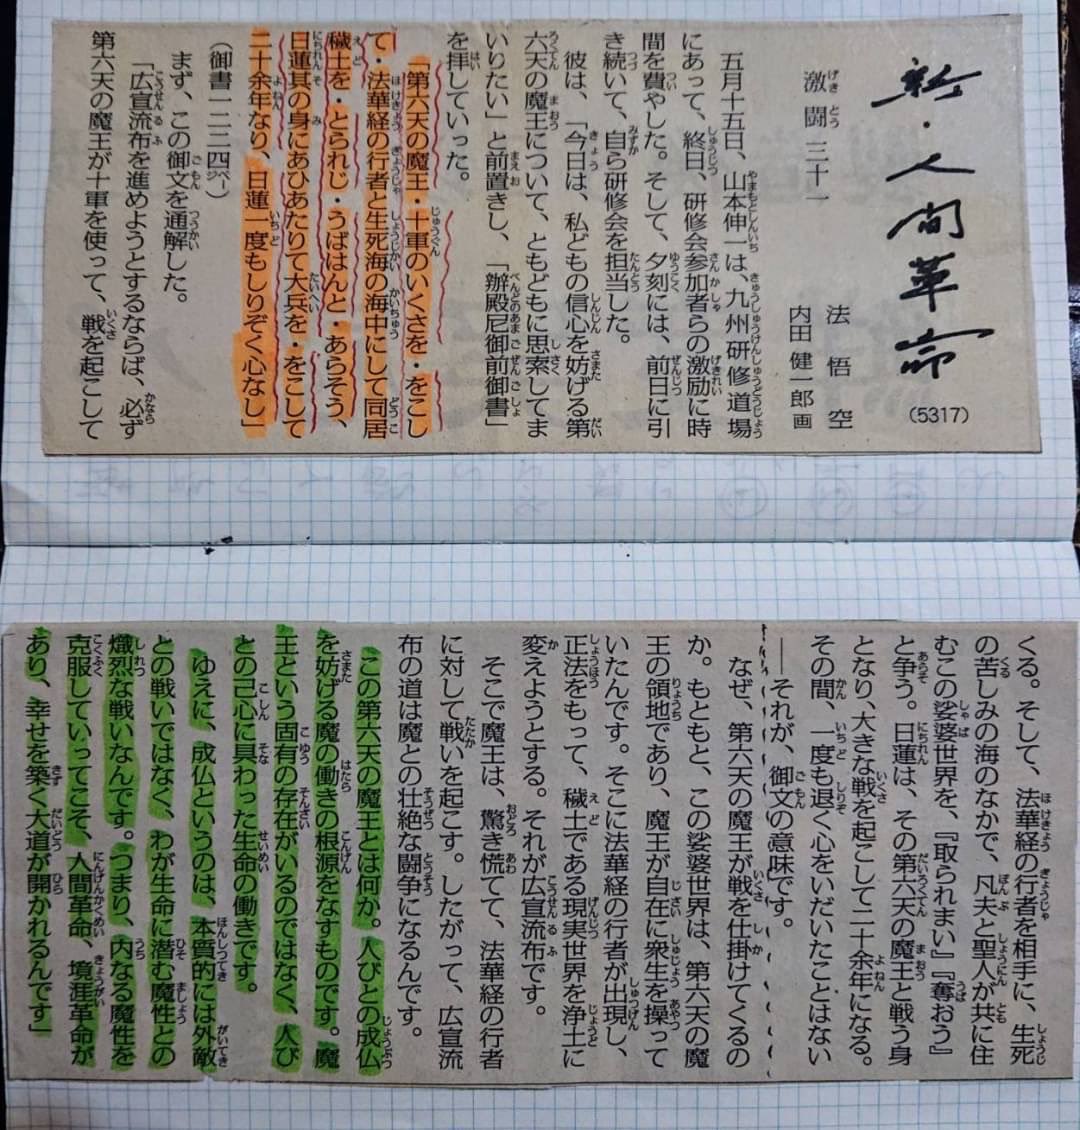 新・人間革命
(5317)
法悟空
内田健一郎 画
激闘 三十一
五月十五日、山本伸一は、九州研修道場
にあって、終日、研修会参加者らの激励に時
間を費やした。そして、夕刻には、前日に引
き続いて、自ら研修会を担当した。
彼は、「今日は、私どもの信心を妨げる第
六天の魔王について、ともどもに思索してま
いりたい」と前置きし、「辦殿尼御前御書」
を拝していった。
「第六天の魔王・十軍のいくさを・をこし
て・法華経の行者と生死海の海中にして同居
穢土を・とられじ・うばはんと・あらそう、
日蓮其の身にあひあたりて大兵を・をこして
二十余年なり、日蓮一度もしりぞく心なし」
(御書一二二四ページ)
まず、この御文を通解した。
「広宣流布を進めようとするならば、必ず
第六天の魔王が十軍を使って、戦を起こして
くる。そして、法華経の行者を相手に、生死
の苦しみの海のなかで、凡夫と聖人が共に住
むこの娑婆世界を、『取られまい』『奪おう』
と争う。日蓮は、その第六天の魔王と戦う身
となり、大きな戦を起こして二十余年になる。
その間、一度も退く心をいだいたことはない
――それが、御文の意味です。
なぜ、第六天の魔王が戦を仕掛けてくるの
か。もともと、この娑婆世界は、第六天の魔
王の領地であり、魔王が自在に衆生を操って
いたんです。そこに法華経の行者が出現し、
正法をもって、穢土である現実世界を浄土に
変えようとする。それが広宣流布です。
そこで魔王は、驚き慌てて、法華経の行者
に対して戦いを起こす。したがって、広宣流
布の道は魔との壮絶な闘争になるんです。
この第六天の魔王とは何か。人びとの成仏
を妨げる魔の働きの根源をなすものです。魔
王という固有の存在がいるのではなく、人び
との己心に具わった生命の働きです。
ゆえに、成仏というのは、本質的には外敵
との戦いではなく、わが生命に潜む魔性との
熾烈な戦いなんです。つまり、内なる魔性を
克服していってこそ、人間革命、境涯革命が
あり、幸せを築く大道が開かれるんです」